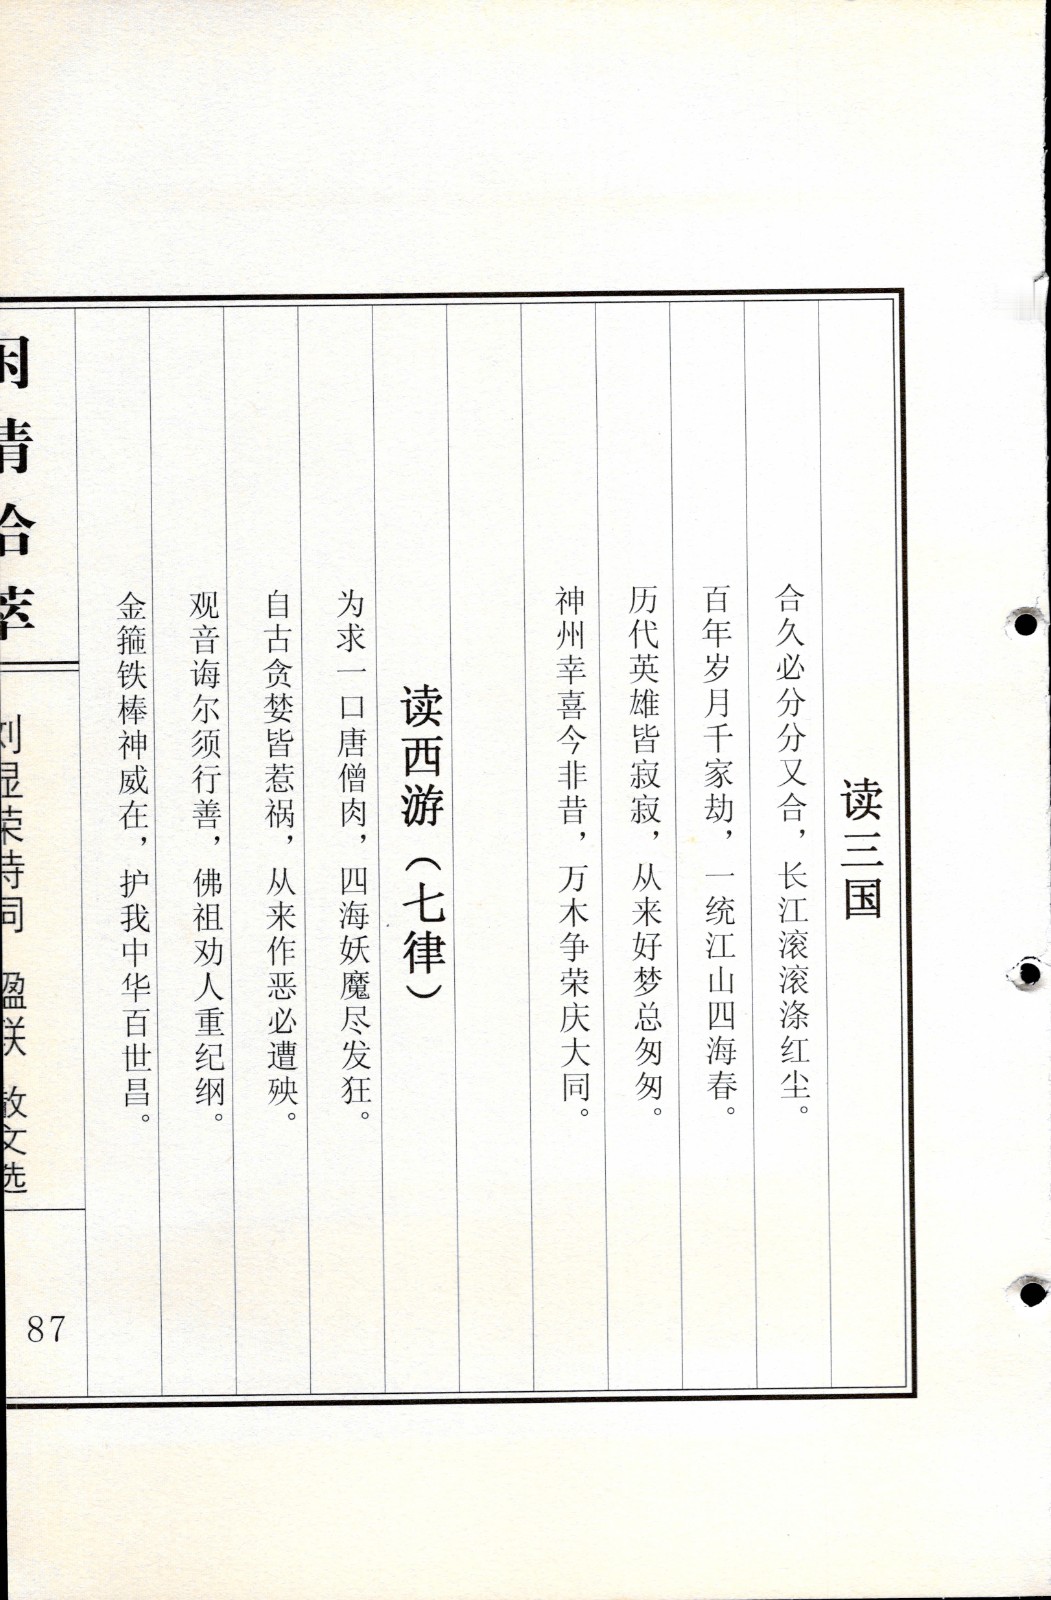 读三国
合久必分分又合，长江滚滚涤红尘。
百年岁月千家劫，一统江山四海春。
历代英雄皆寂寂，从来好梦总匆匆。
神州幸喜今非昔，万木争荣庆大同。
读西游（七律）
为求一口唐僧肉，四海妖魔尽发狂。
自古贪婪皆惹祸，从来作恶必遭殃。
观音诲尔须行善，佛祖劝人重纪纲。
金箍铁棒神威在，护我中华百世昌。
情拾萃
刘显荣诗词 盈联 散文选
87